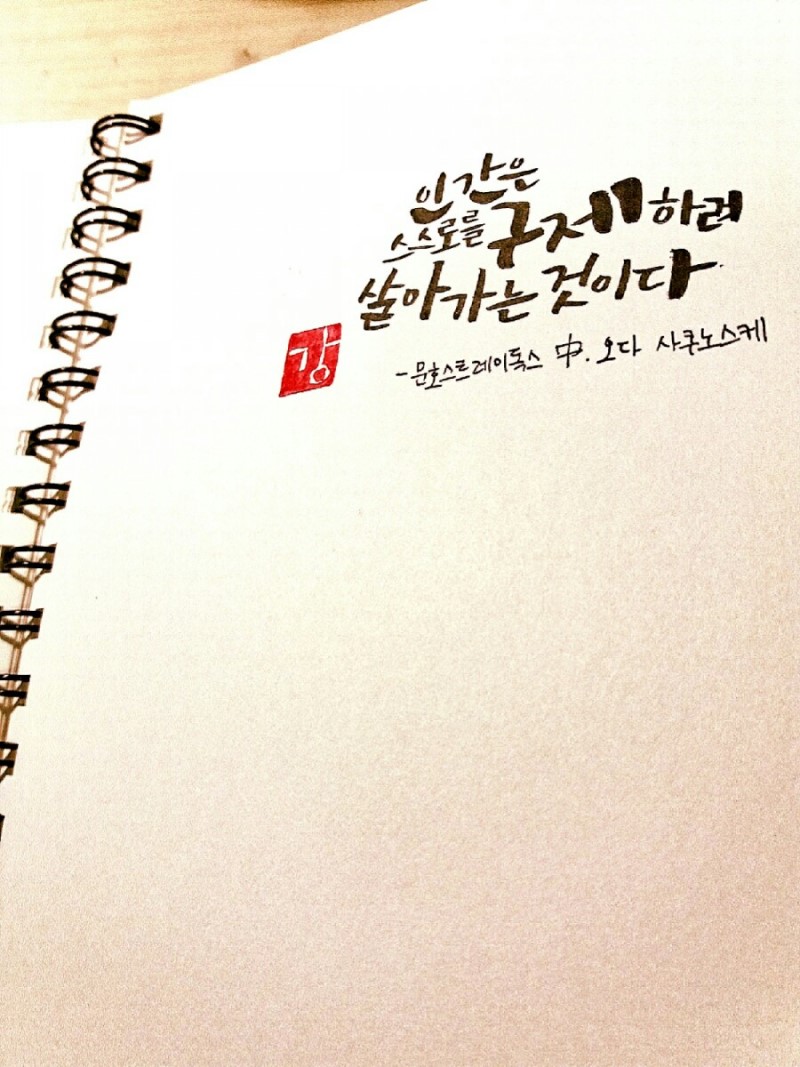 인간은
스스로를 구제하려
살아가는 것이다.
강
-문호스트레이독스 中. 오다 사쿠노스케